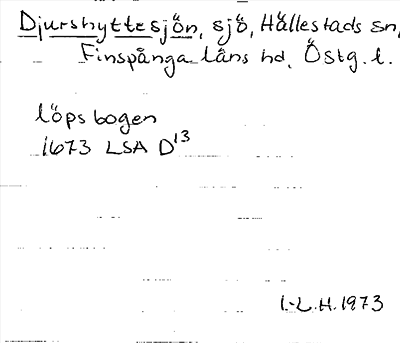 Djurshyttesjön, sjö, Hällestads sn,
Finspånga läns hd, Östg. l.
löpsbogen
1673 LSA D13
I.-L.H. 1973